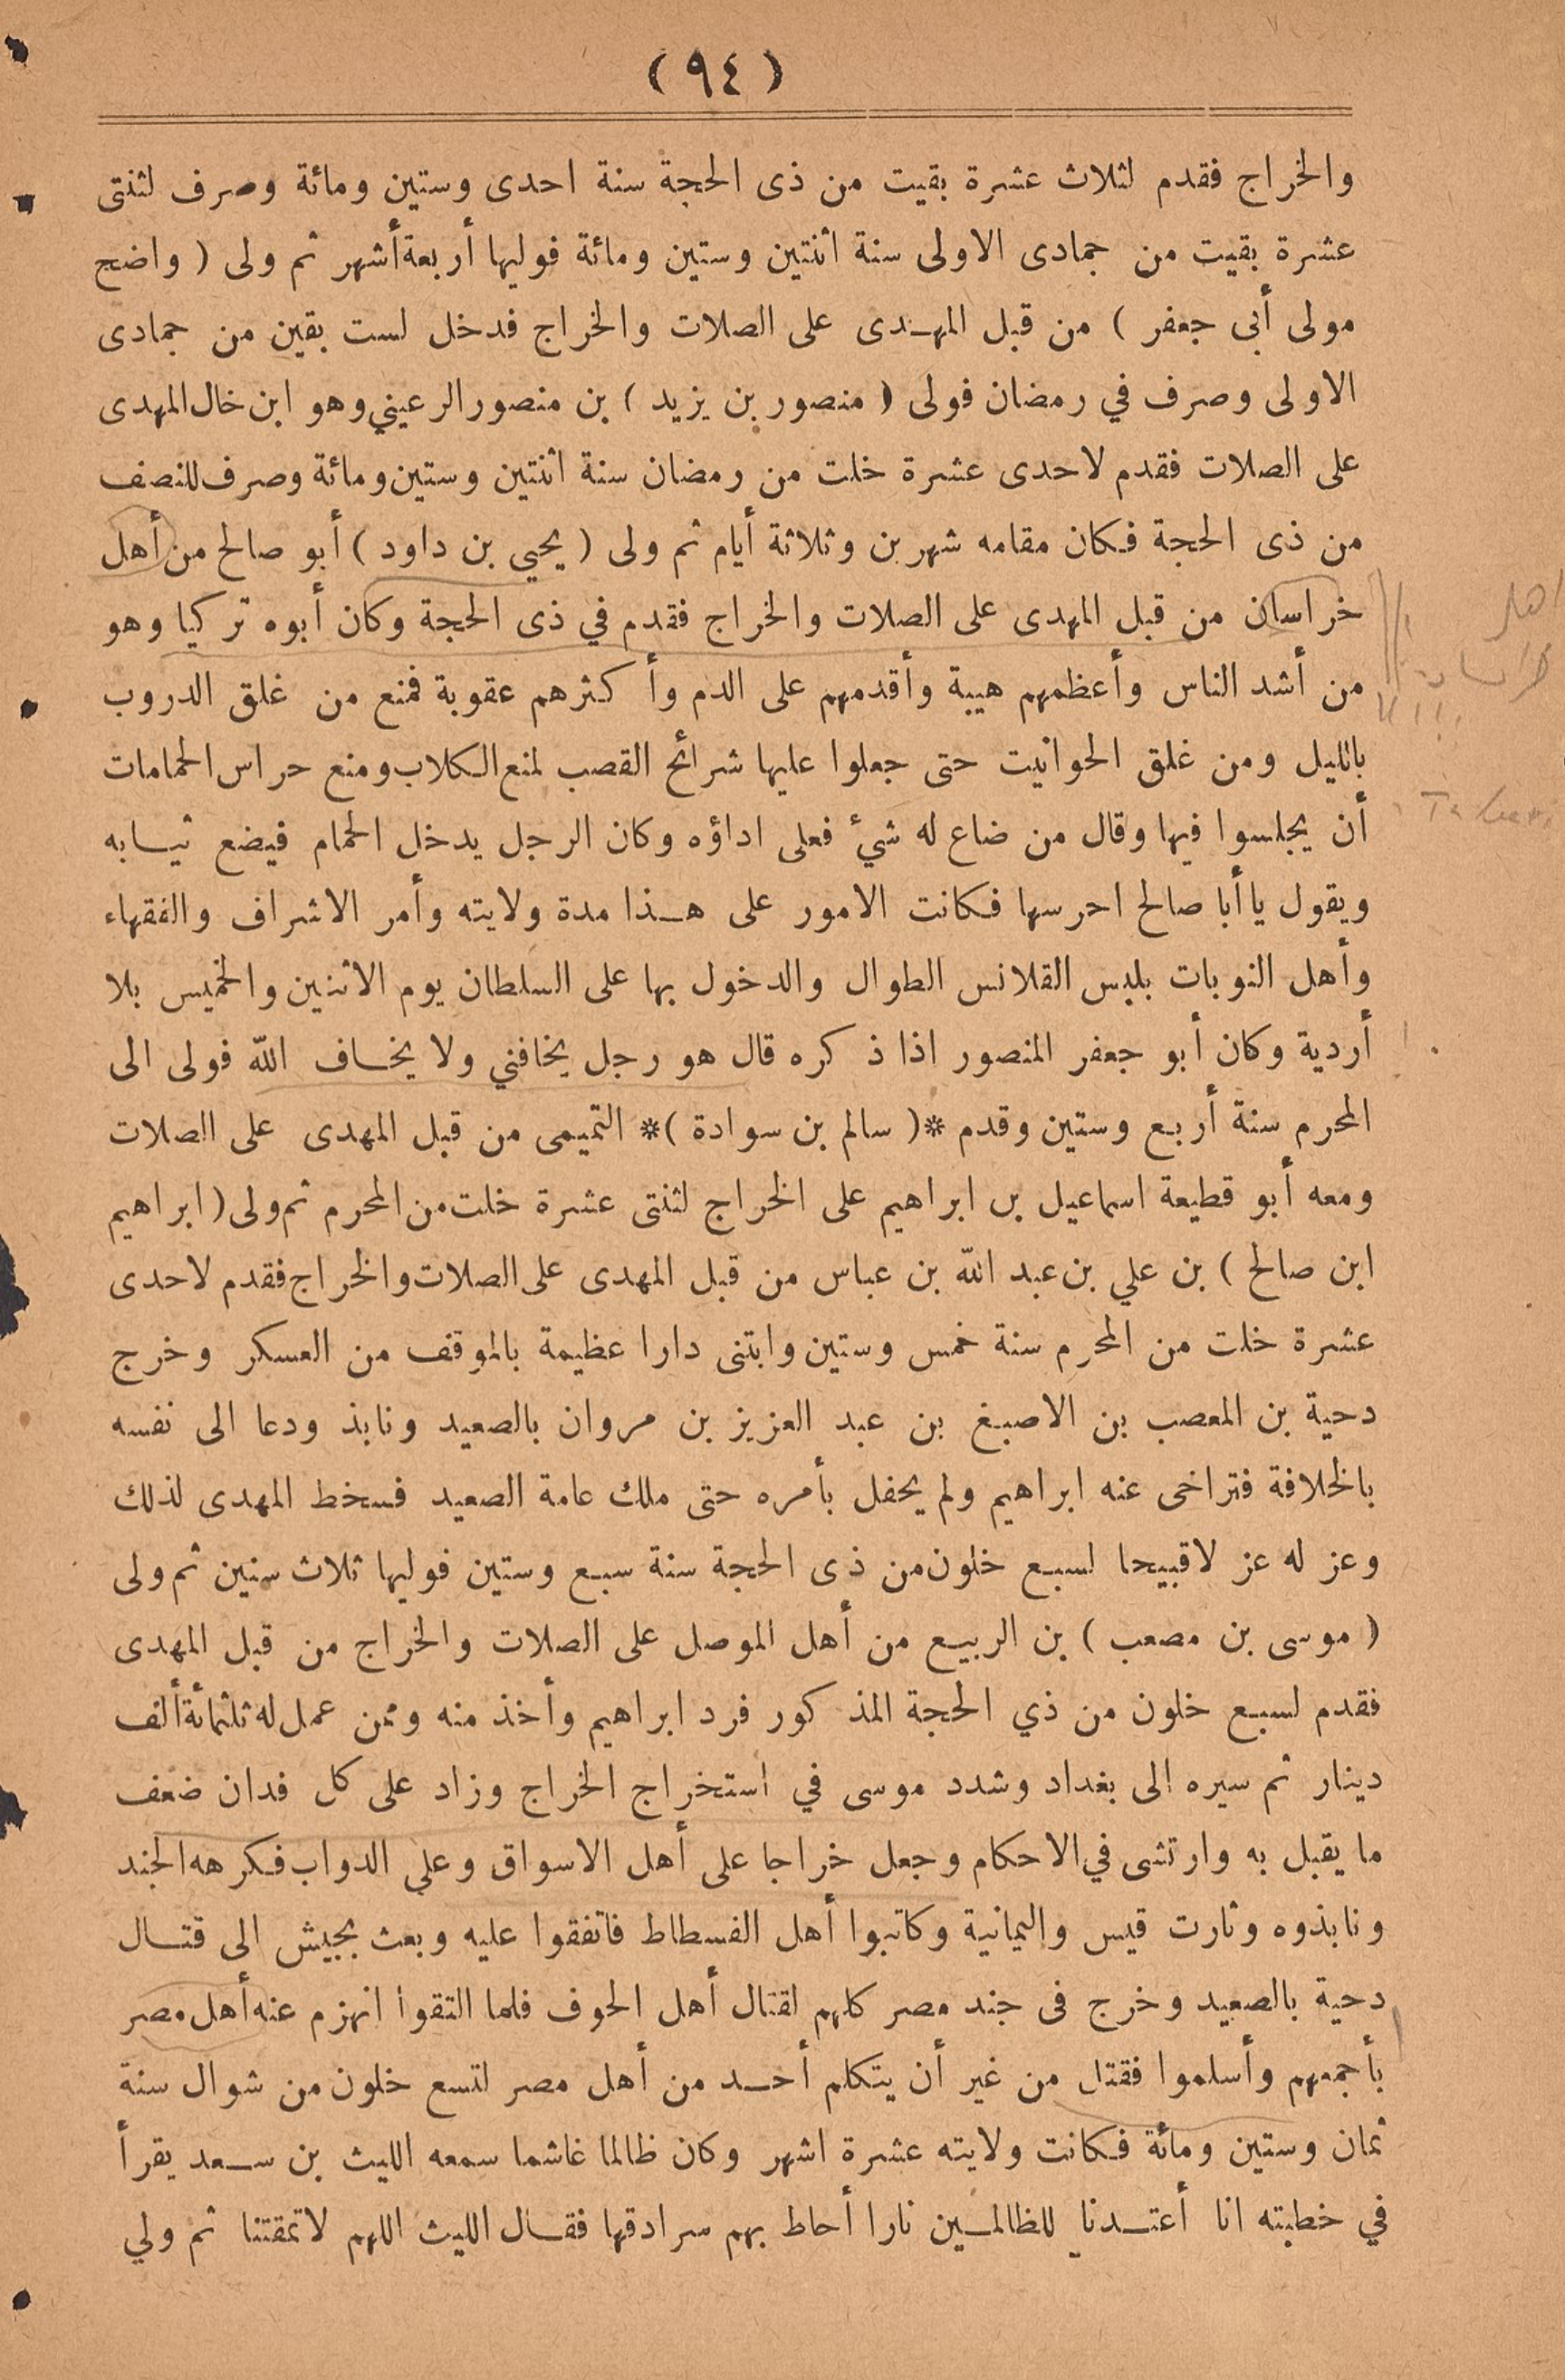 (٩٤)
والخراج فقدم لثلاث عشرة بقيت من ذى الحجة سنة احدى وستين ومائة وصرف لثنتى
عشرة بقيت من جمادى الاولى سنة اثنتين وستين ومائة فوليها أربعة أشهر ثم ولى ( واضح
مولى أبى جعفر ) من قبل المهدى على الصلات والخراج فدخل لست بقين من جمادى
الاولى وصرف في رمضان فولى ( منصور بن يزيد ) بن منصور الرعيني وهو ابن خال المهدى
على الصلات فقدم لاحدى عشرة خلت من رمضان سنة اثنتين وستين ومائة وصرف للنصف
من ذى الحجة فكان مقامه شهرين وثلاثة أيام ثم ولى ( يحيي بن داود ) أبو صالح من أهل
خراسان من قبل المهدى على الصلات والخراج فقدم في ذى الحجة وكان أبوه تركيا وهو
من أشد الناس وأعظمهم هيبة وأقدمهم على الدم وأكثرهم عقوبة فمنع من غلق الدروب
بالليل ومن غلق الحوانيت حتى جعلوا عليها شرائح القصب لمنع الكلاب ومنع حراس الحمامات
أن يجلسوا فيها وقال من ضاع له شيْ فعلى اداؤه وكان الرجل يدخل الحمام فيضع ثيابه
ويقول يا أبا صالح احرسها فكانت الامور على هذا مدة ولايته وأمر الاشراف والفقهاء
وأهل النوبات بلبس القلانس الطوال والدخول بها على السلطان يوم الاثنين والخميس بلا
أردية وكان أبو جعفر المنصور اذا ذكره قال هو رجل يخافني ولا يخاف الله فولى الى
المحرم سنة أربع وستين وقدم *( سالم بن سوادة )* التميمى من قبل المهدى على الصلات
ومعه أبو قطيعة اسماعيل بن ابراهيم على الخراج لثنتى عشرة خلت من المحرم ثم ولى ( ابراهيم
ابن صالح ) بن علي بن عبد الله بن عباس من قبل المهدى على الصلات والخراج فقدم لاحدى
عشرة خلت من المحرم سنة خمس وستين وابتنى دارا عظيمة بالموقف من العسكر وخرج
دحية بن المعصب بن الاصبغ بن عبد العزيز بن مروان بالصعيد ونابذ ودعا الى نفسه
بالخلافة فتراخى عنه ابراهيم ولم يحفل بأمره حتى ملك عامة الصعيد فسخط المهدى لذلك
وعزله عزلا قبيحا لسبع خلون من ذى الحجة سنة سبع وستين فوليها ثلاث سنين ثم ولى
( موسى بن مصعب ) بن الربيع من أهل الموصل على الصلات والخراج من قبل المهدى
فقدم لسبع خلون من ذي الحجة المذكور فرد ابراهيم وأخذ منه وممن عمل له ثلثمائة ألف
دينار ثم سيره الى بغداد وشدد موسى في استخراج الخراج وزاد على كل فدان ضعف
ما يقبل به وارتشى في الاحكام وجعل خراجا على أهل الاسواق وعلي الدواب فكرهه الجند
ونابذوه وثارت قيس واليمانية وكاتبوا أهل الفسطاط فاتفقوا عليه وبعث بجيش الى قتال
دحية بالصعيد وخرج فى جند مصر كلهم لقتال أهل الحوف فلما التقوا انهزم عنه أهل مصر
بأجمعهم وأسلموا فقتل من غير أن يتكلم أحد من أهل مصر لتسع خلون من شوال سنة
ثمان وستين ومائة فكانت ولايته عشرة اشهر وكان ظالما غاشما سمعه الليث بن سعد يقرأ
في خطبته انا أعتدنا للظالمين نارا أحاط بهم سرادقها فقال الليث اللهم لا تمقتنا ثم ولي
اهل
خراسان